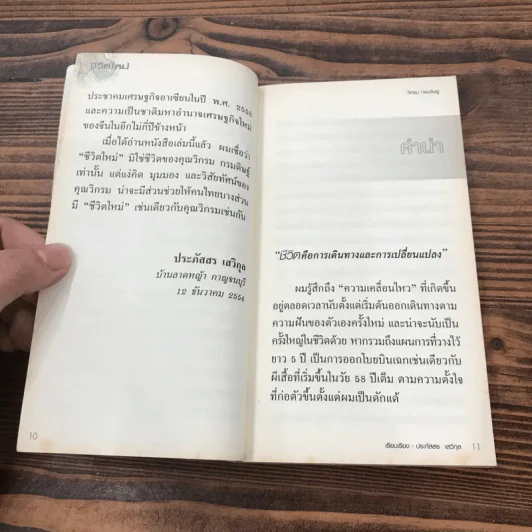 ชีวิตใหม่
ประชาคมเศรษฐกิจอาเซียนในปี พ.ศ. 2558
และความเป็นชาติมหาอำนาจเศรษฐกิจใหม่
ของจีนในอีกไม่กี่ปีข้างหน้า
เมื่อได้อ่านหนังสือเล่มนี้แล้ว ผมเชื่อว่า
“ชีวิตใหม่” มิใช่ชีวิตของคุณวิกรม กรมดิษฐ์
เท่านั้น แต่แง่คิด มุมมอง และวิสัยทัศน์ของ
คุณวิกรม น่าจะมีส่วนช่วยให้คนไทยบางส่วน
มี “ชีวิตใหม่” เช่นเดียวกับคุณวิกรมเช่นกัน
ประภัสสร เสวิกุล
บ้านลาดหญ้า กาญจนบุรี
12 ธันวาคม 2554
10
วิกรม กรมดิษฐ์
คำนำ
“ชีวิตคือการเดินทางและการเปลี่ยนแปลง”
ผมรู้สึกถึง “ความเคลื่อนไหว” ที่เกิดขึ้น
อยู่ตลอดเวลานับตั้งแต่เริ่มต้นออกเดินทางตาม
ความฝันของตัวเองครั้งใหม่ และน่าจะนับเป็น
ครั้งใหญ่ในชีวิตด้วย หากรวมถึงแผนการที่วางไว้
ยาว 5 ปี เป็นการออกโบยบินเฉกเช่นเดียวกับ
ผีเสื้อที่เริ่มขึ้นในวัย 58 ปีเต็ม ตามความตั้งใจ
ที่ก่อตัวขึ้นตั้งแต่ผมเป็นดักแด้
เรียบเรียง : ประภัสสร เสวิกุล 11